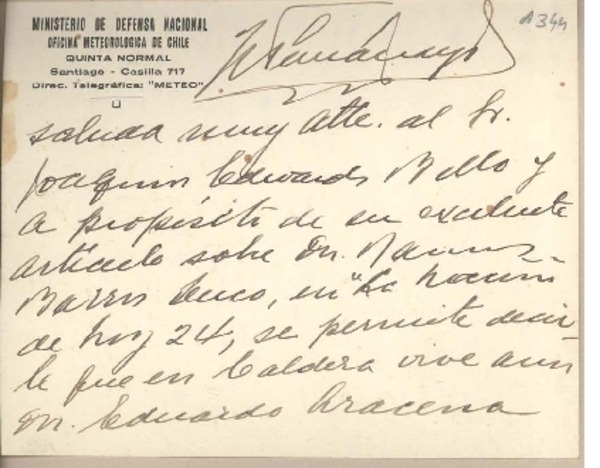 MINISTERIO DE DEFENSA NACIONAL
OFICINA METEOROLOGICA DE CHILE
QUINTA NORMAL
Santiago - Casilla 717
Direc. Telegráfica: "METEO"
344
saluda muy atte. al Sr.
Joaquin Edwards Bello y
a propósito de su excelente
artículo sobre Dn. Ramon
Barros Luco, en "La Nación
de hoy 24, se permite decir-
le que en Caldera vive aun
Dn. Eduardo Aracena